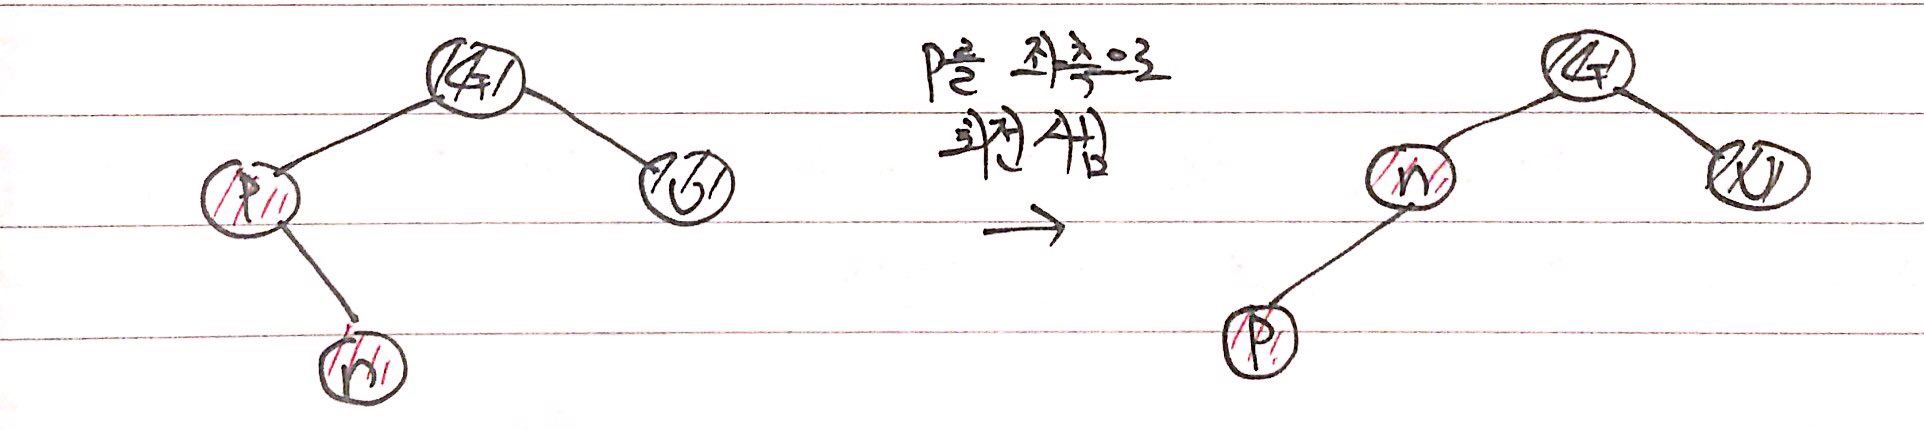 G
P
U
n
P를 좌측으로
회전시킴
→
G
n
U
P